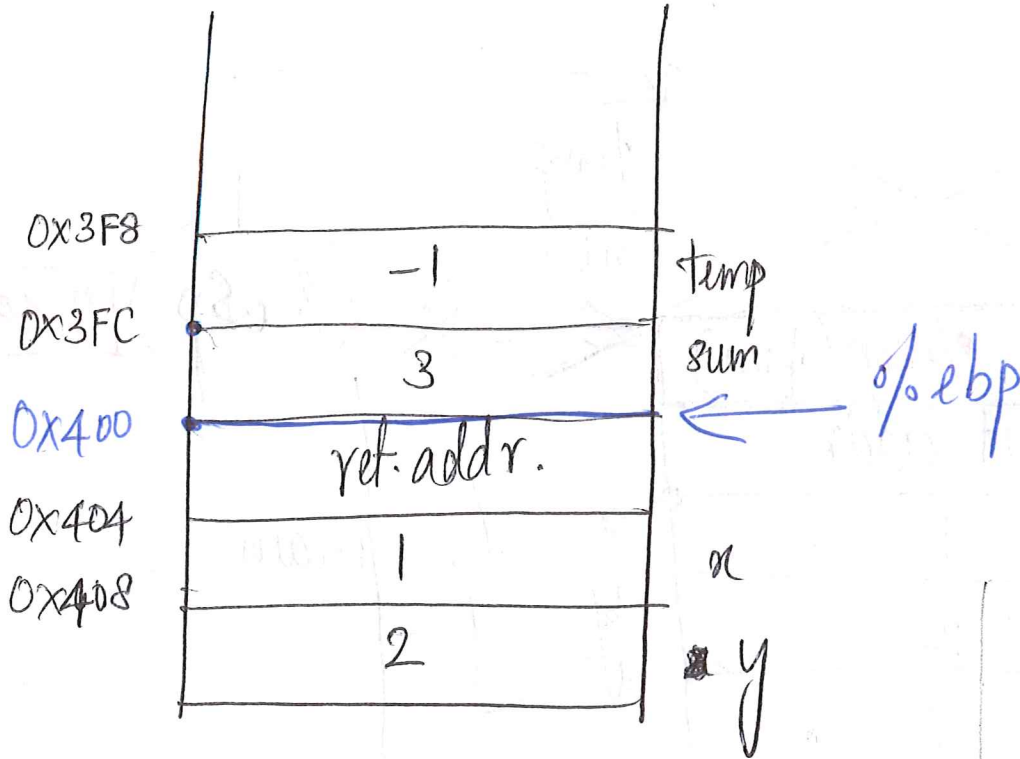 0X3F8
-1
temp
0X3FC
3
sum
0X400
ret. addr.
%ebp
0X404
1
x
0X408
2
y